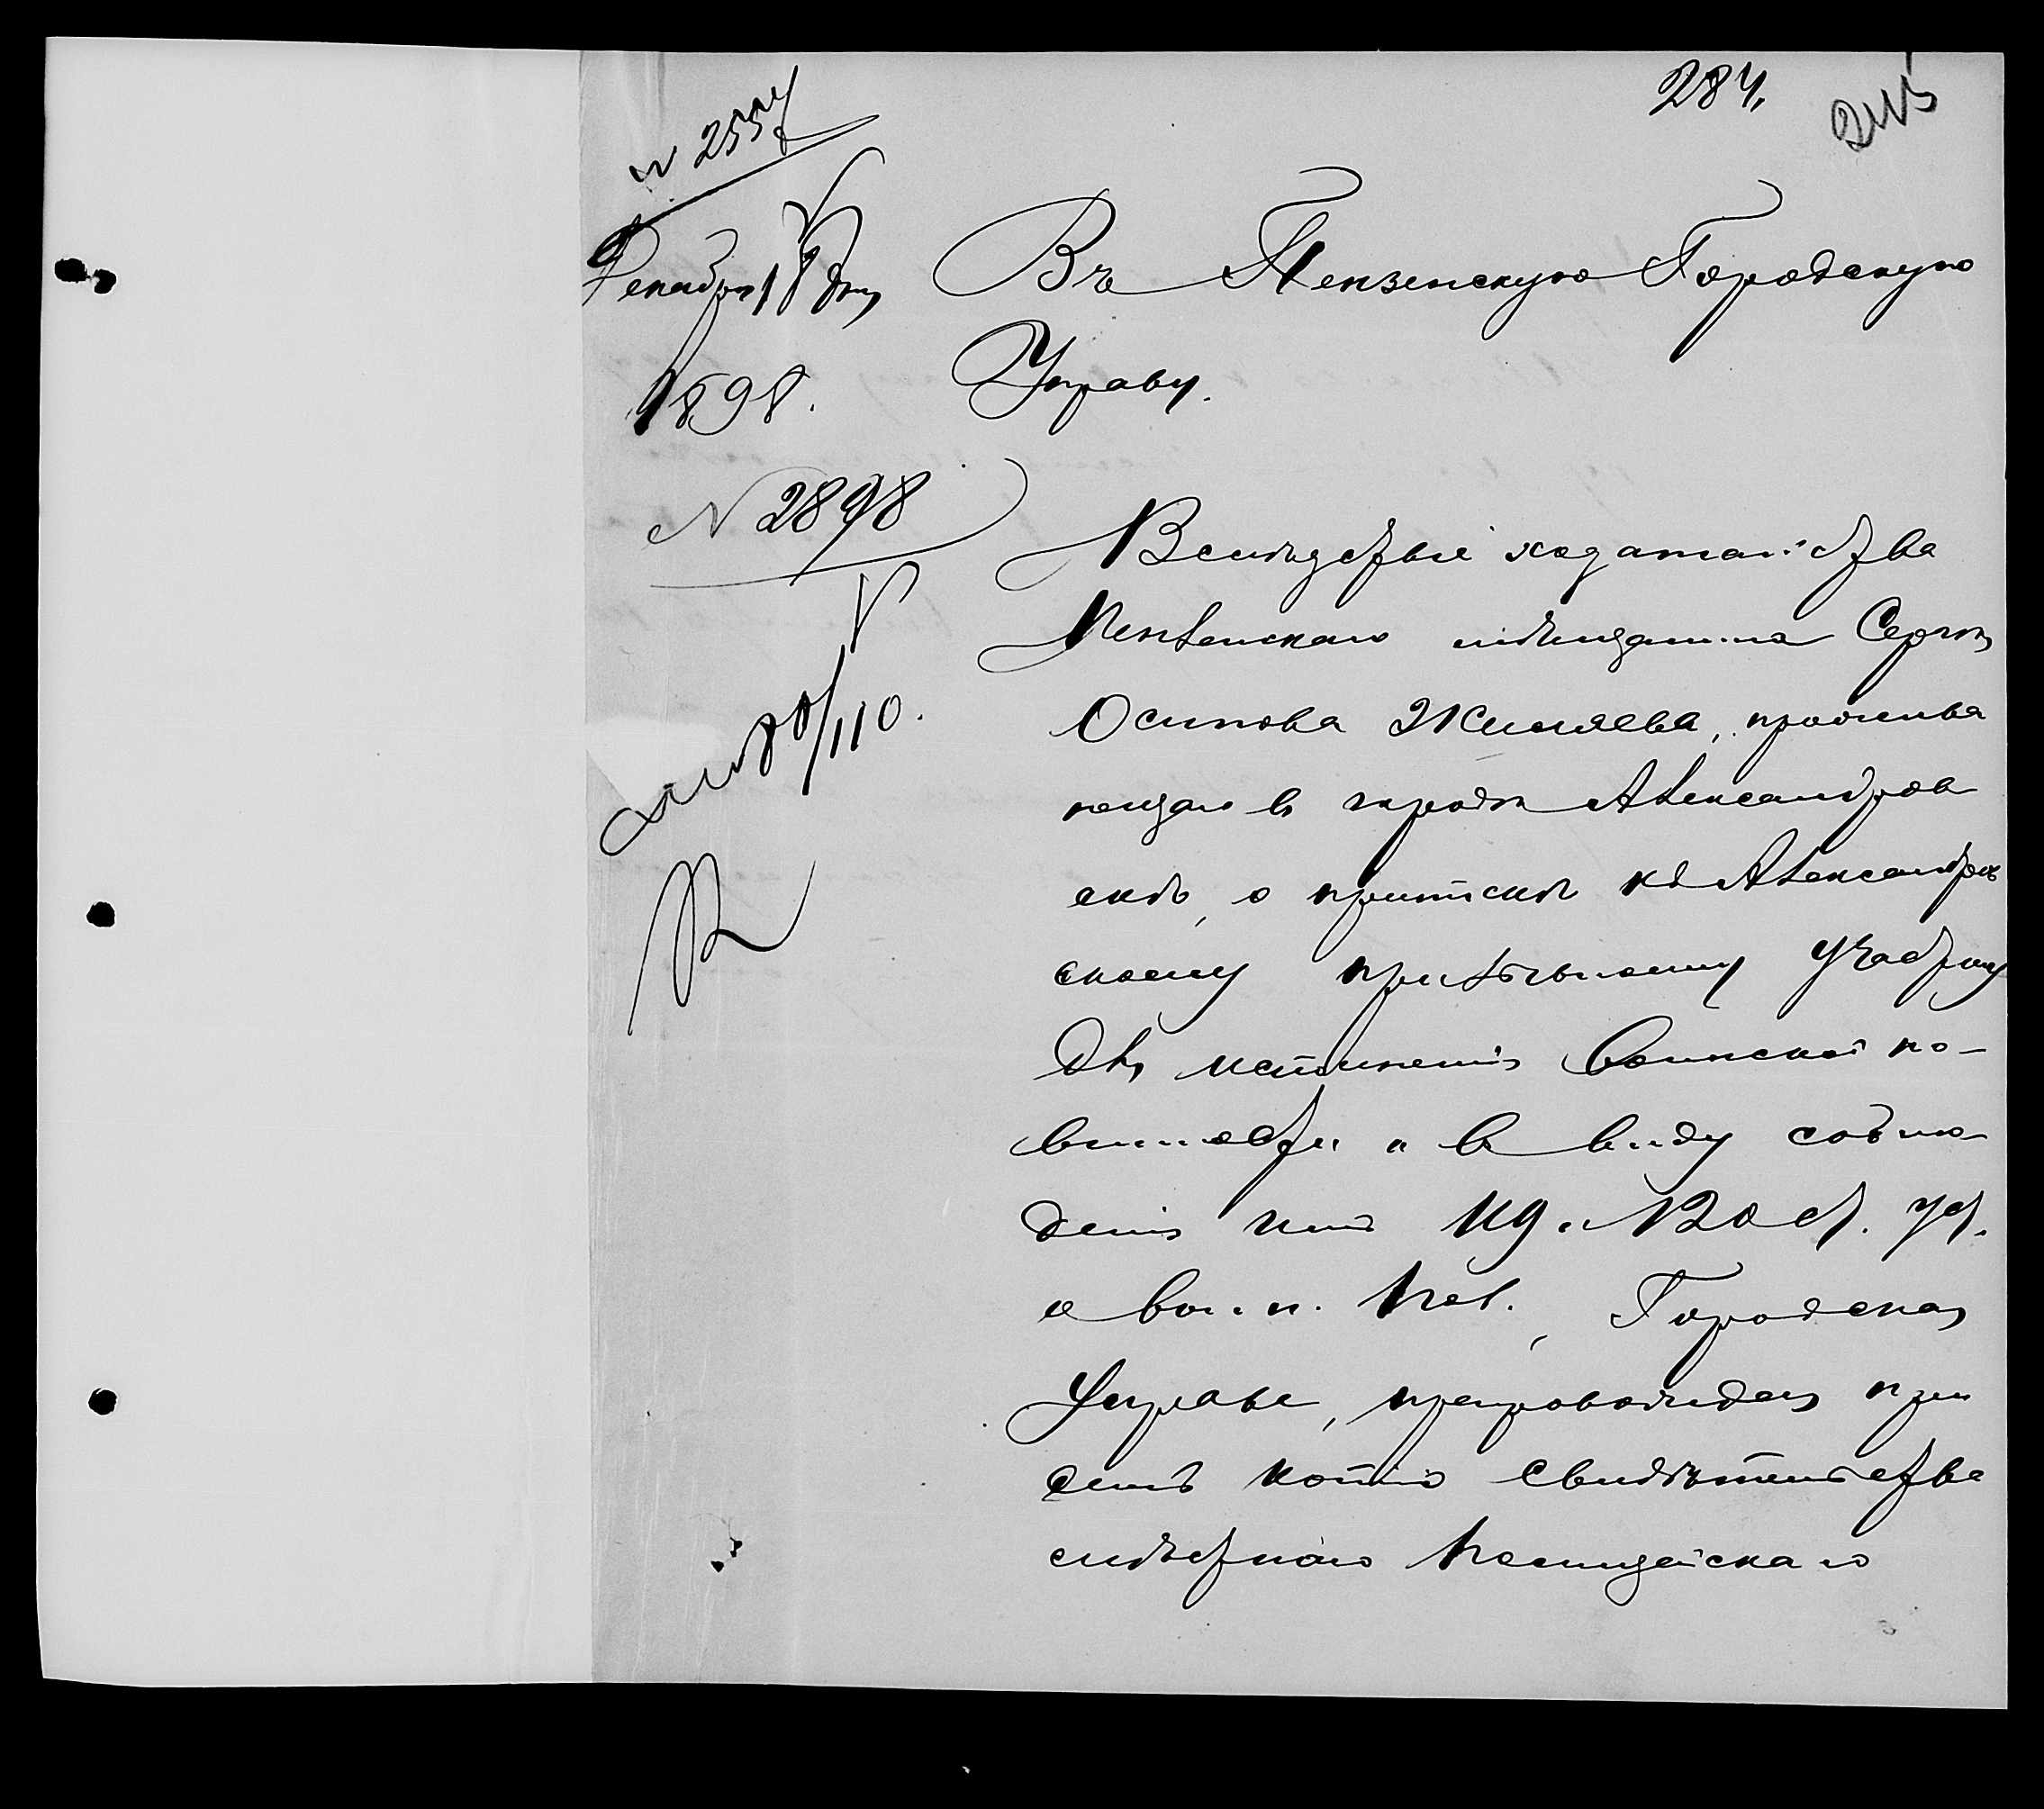 284.
245
№ 2557
Декабря 18 дня
1898.
№ 2898
110.
Въ Пензенскую Городскую
Управу.
Вслѣдствіе ходатайства
Пензенскаго мѣщанина Сергѣя
Осипова Жиляева, прожива
ющаго въ городѣ Александров
скѣ, о припискѣ къ Александров
скому призывному участку
для исполненія воинской по-
винности и въ виду соблю-
денія имъ 119 и 120 ст. уст.
о воин. пов., Городская
Управа, препровождая при
семъ копію свидѣтельства
мѣстнаго Полицейскаго